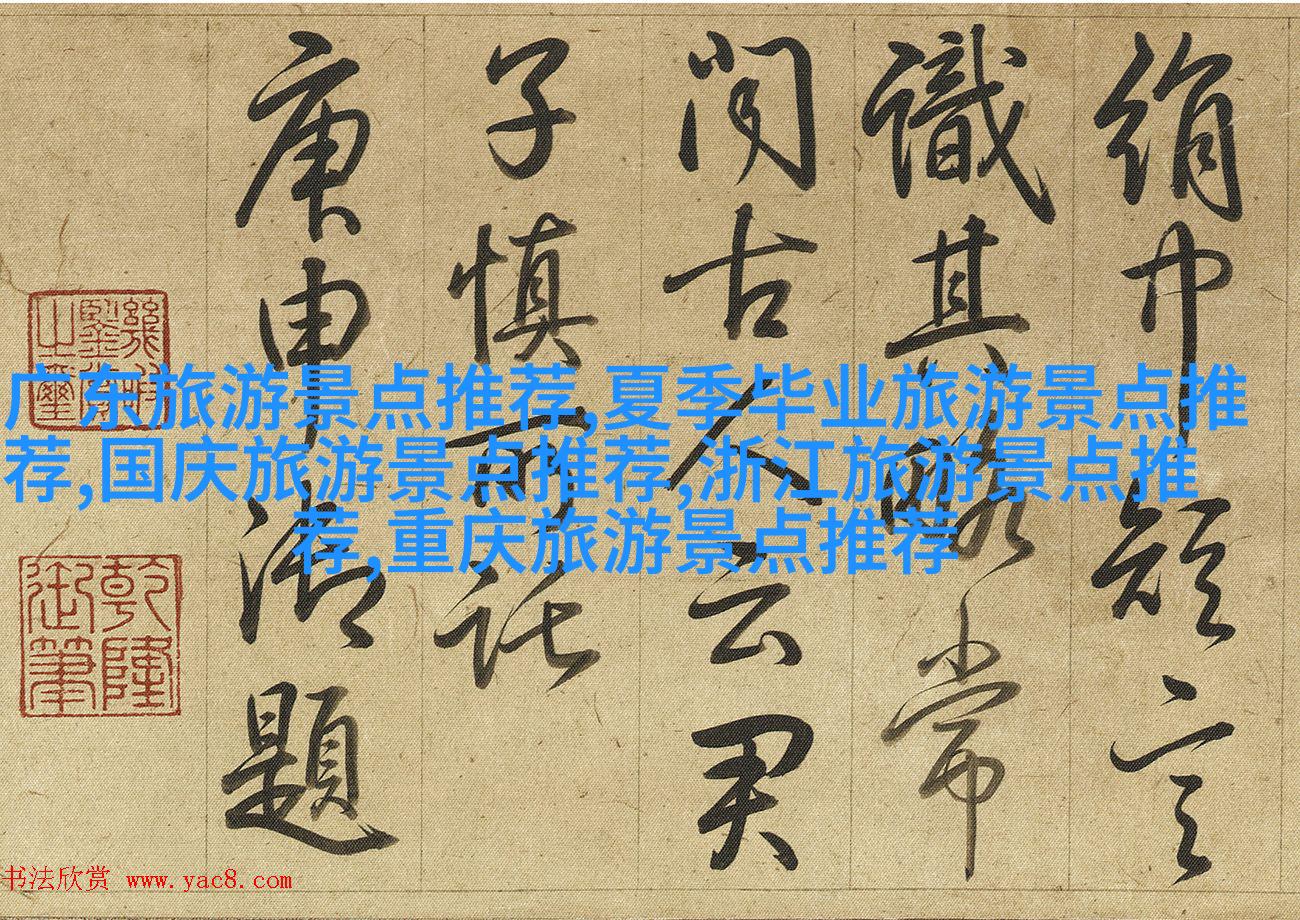 絹巾短言
識其略常
聞古人云君
子慎所託
庚申御題
乾隆御筆
广东旅游景点推荐,夏季毕业旅游景点推
荐,国庆旅游景点推荐,浙江旅游景点推
荐,重庆旅游景点推荐
书法欣赏 www.yac8.com